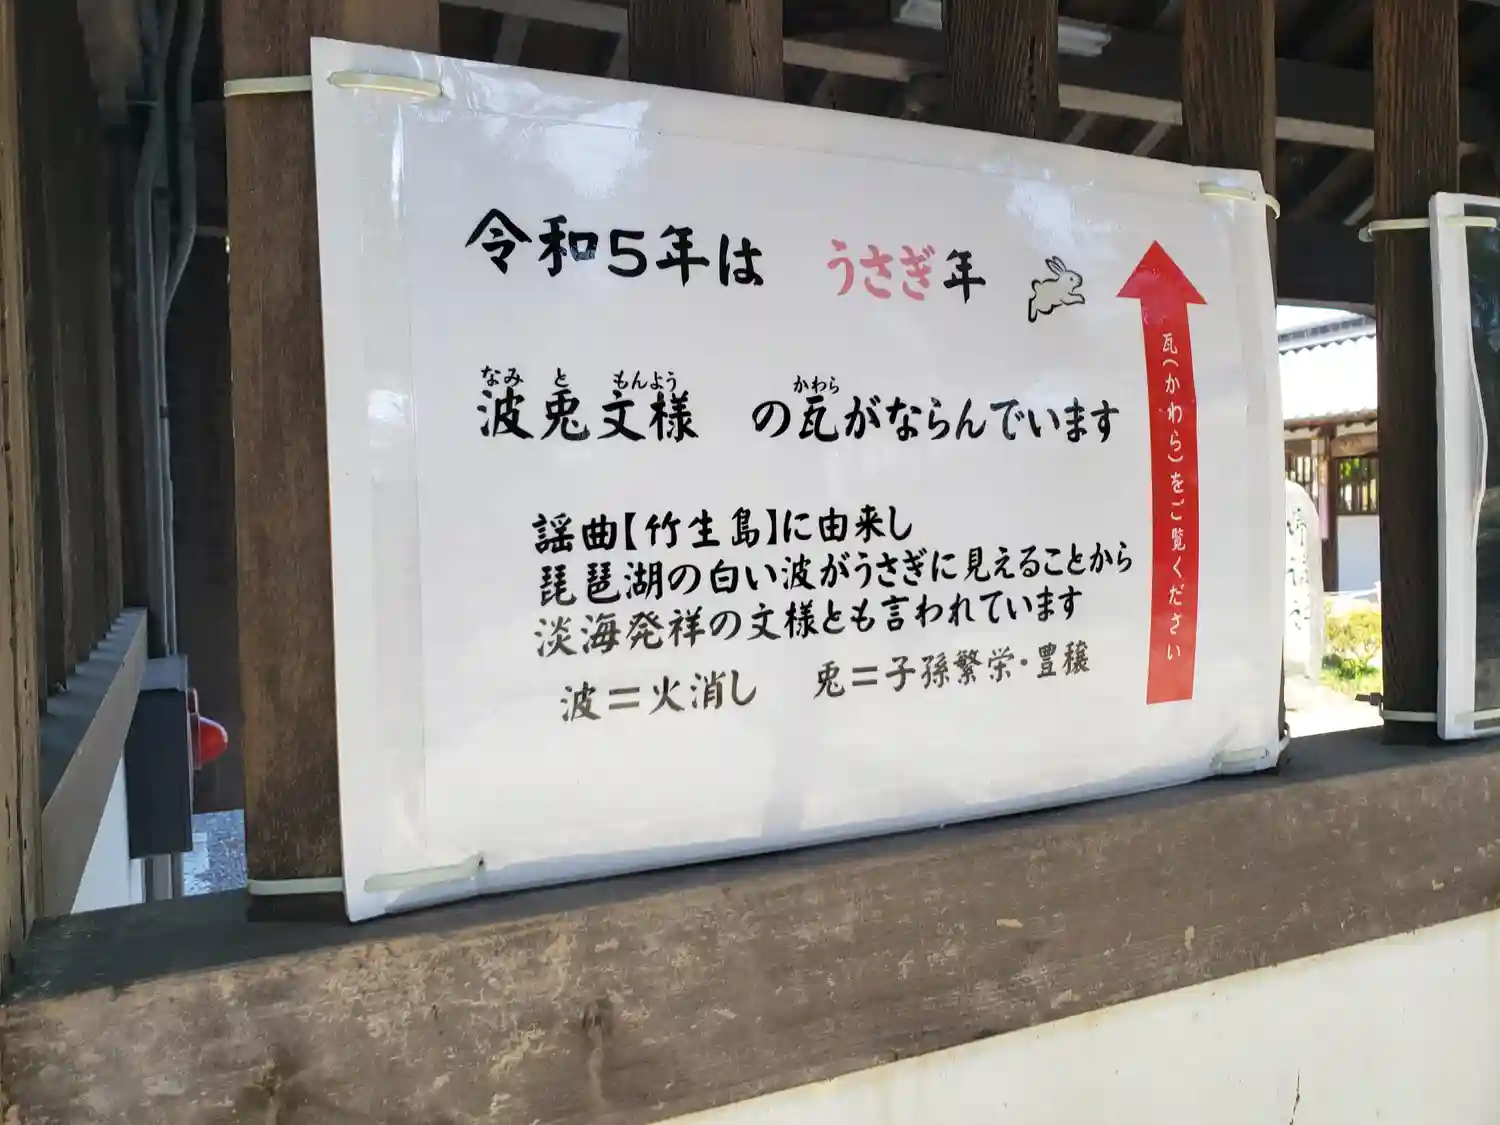 令和5年は うさぎ年
なみ と もんよう かわら
波兎文様 の瓦がならんでいます
謡曲【竹生島】に由来し
琵琶湖の白い波がうさぎに見えることから
淡海発祥の文様とも言われています
波=火消し 兎=子孫繁栄・豊穣
瓦(かわら)をご覧ください